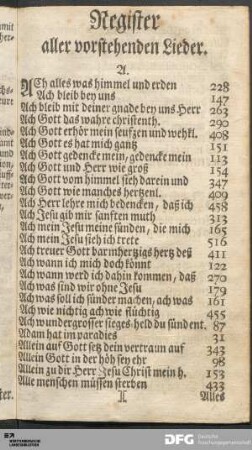 Register
aller vorstehenden Lieder.
A.
ACh alles was himmel und erden 228
Ach bleib bey uns 147
Ach bleib mit deiner gnade bey uns Herr 263
Ach Gott das wahre christenth. 290
Ach Gott erhör mein seufzen und wehkl. 408
Ach Gott es hat mich gantz 151
Ach Gott gedencke mein, gedencke mein 113
Ach Gott und Herr wie groß 154
Ach Gott vom himmel sieh darein und 347
Ach Gott wie manches hertzenl. 409
Ach Herr lehre mich bedencken, daß ich 458
Ach Jesu gib mir sanften muth 313
Ach mein Jesu meine sünden, die mich 165
Ach mein Jesu sieh ich trete 516
Ach treuer Gott barmhertzigs hertz deß 411
Ach wann ich mich doch könnt 122
Ach wann werd ich dahin kommen, daß 270
Ach was sind wir ohne Jesu 179
Ach was soll ich sünder machen, ach was 161
Ach wie nichtig ach wie flüchtig 455
Ach wundergrosser sieges-held du sündent. 87
Adam hat im paradies 31
Allein auf Gott setz dein vertraun auf 343
Allein Gott in der höh sey ehr 98
Allein zu dir Herr Jesu Christ mein h. 153
Alle menschen müssen sterben 433
Alles
DFG Deutsche Forschungsgemeinschaft